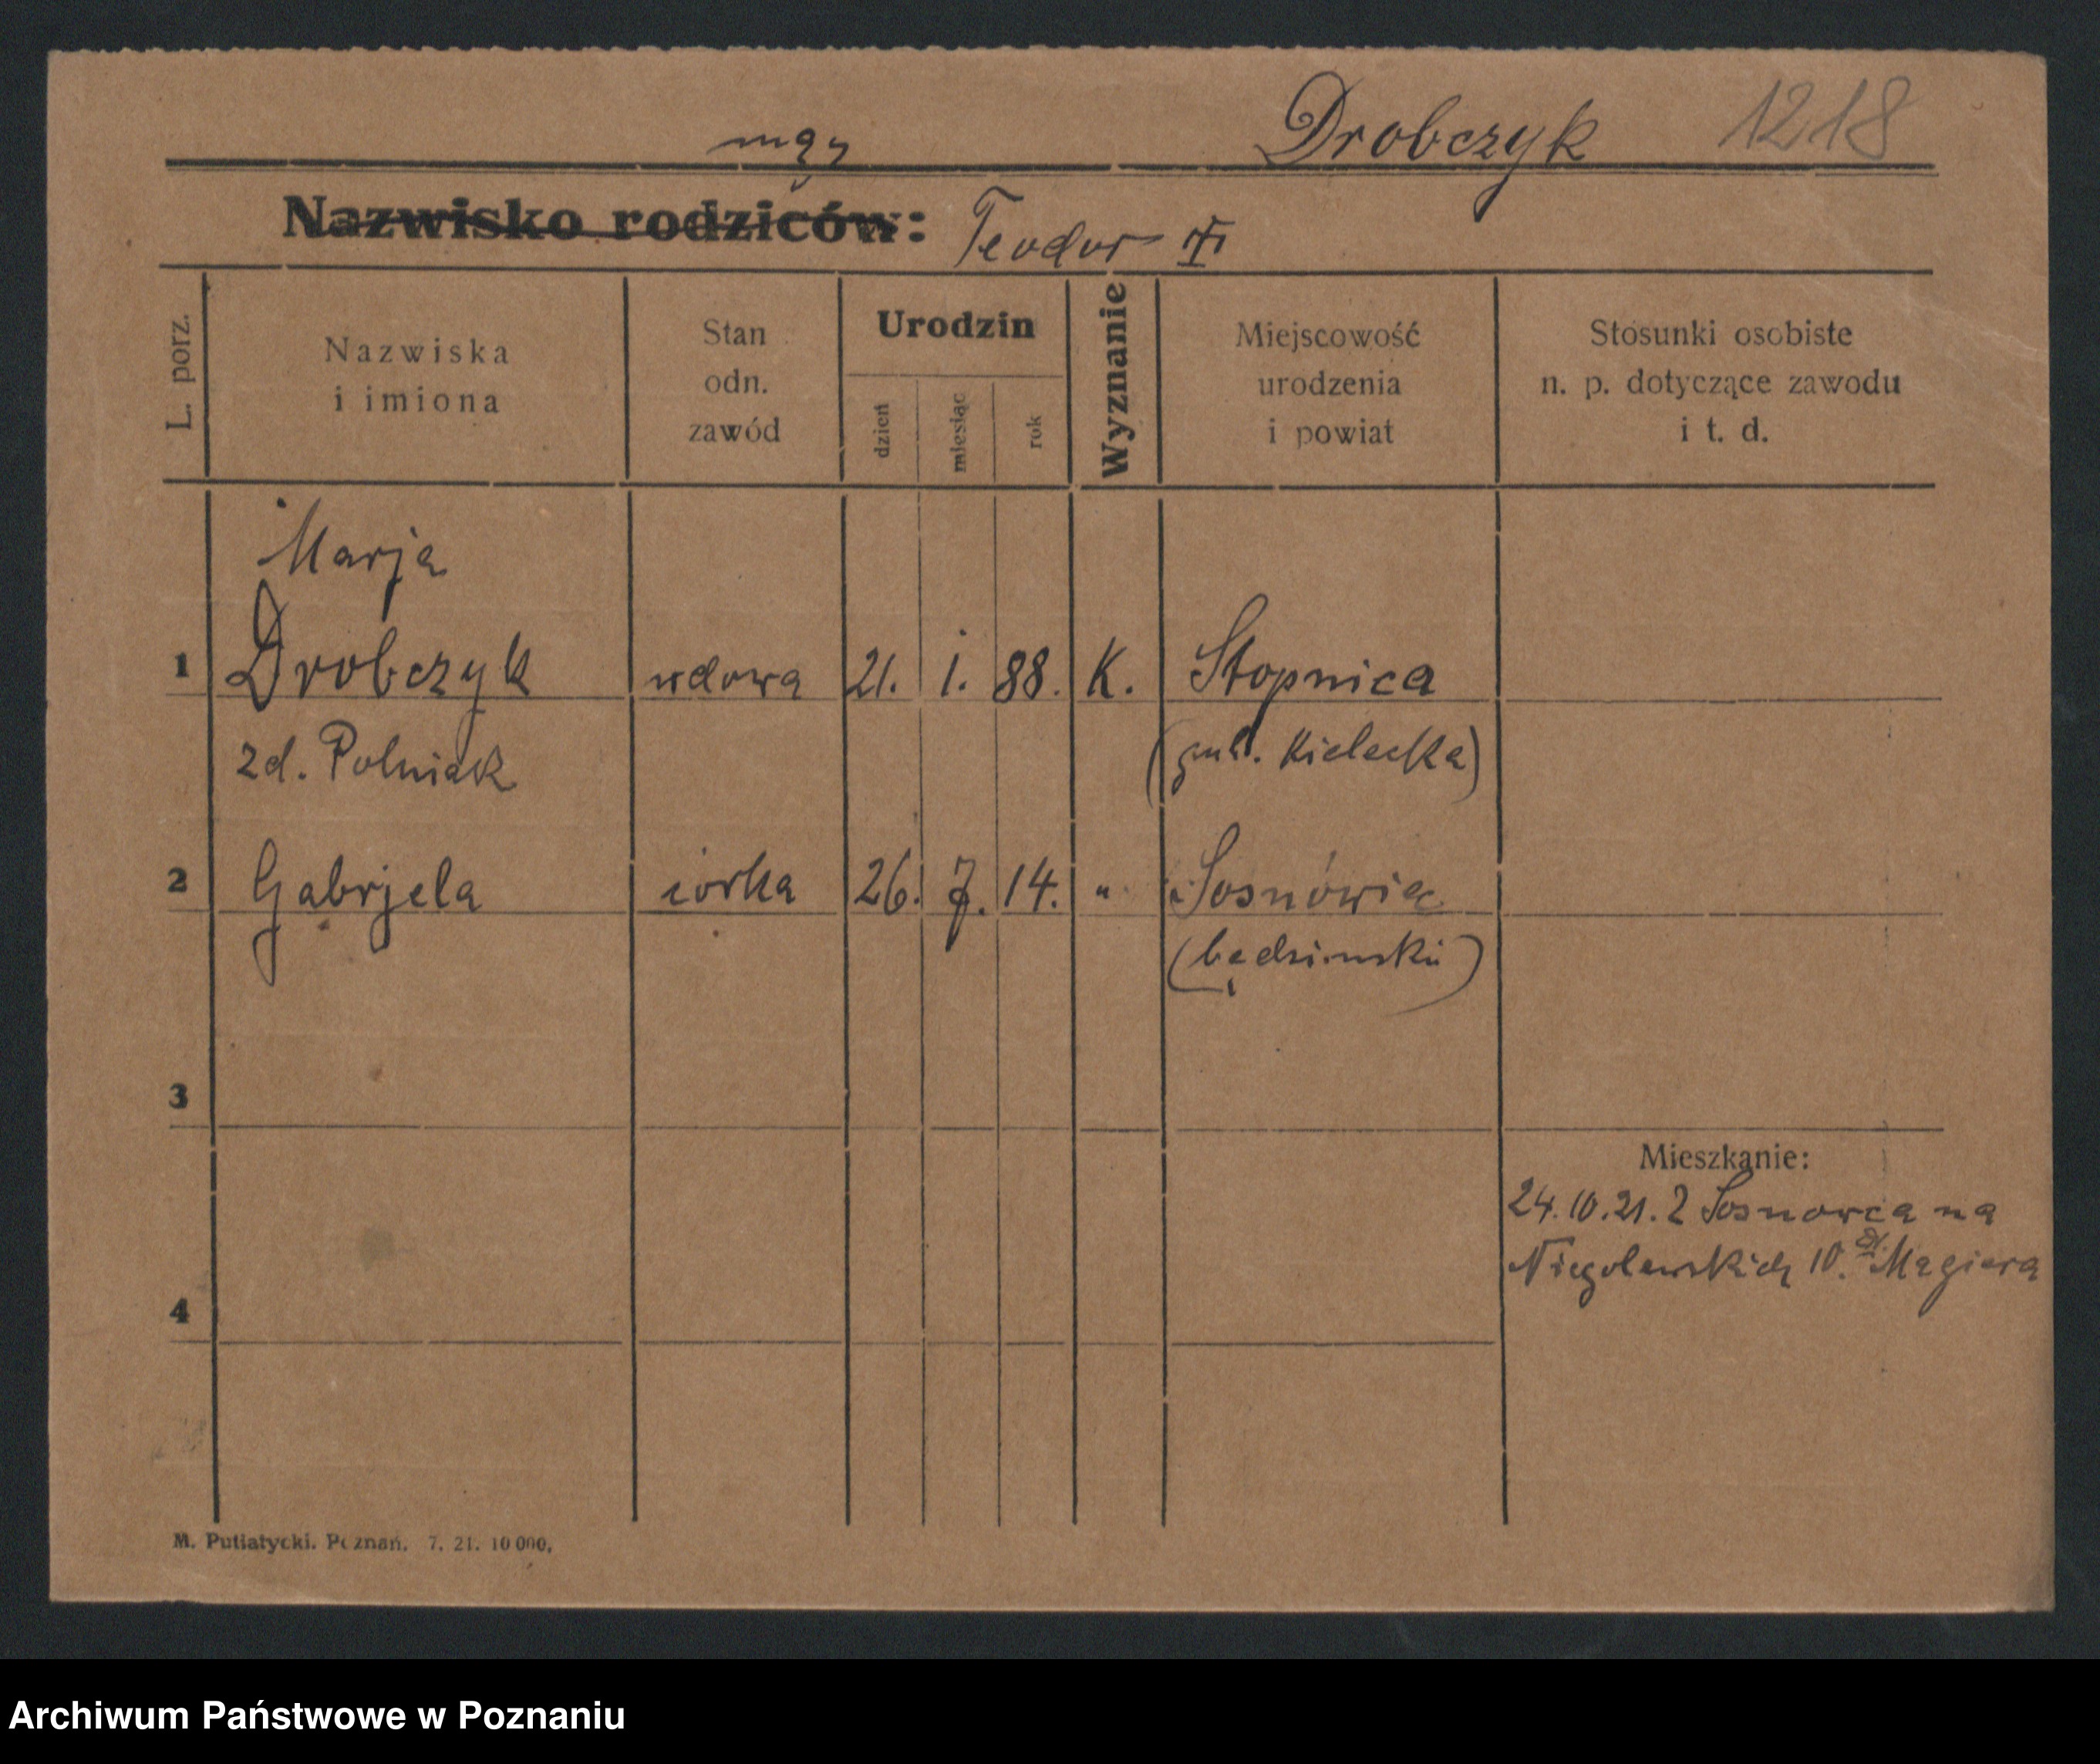 Drobczyk 1218
mąż
Nazwisko rodziców: Teodor
L. porz.
Nazwiska
i imiona
Stan
odn.
zawód
Urodzin
dzień
miesiąc
rok
Wyznanie
Miejscowość
urodzenia
i powiat
Stosunki osobiste
n. p. dotyczące zawodu
i t. d.
Marja
1 Drobczyk wdowa 21. 1. 88. K. Stopnica
zd. Polniak (gub. Kielecka)
2 Gabrjela córka 26. 7. 14. " Sosnówiec
(będziński)
3
Mieszkanie:
24.10.21. z Sosnowca na
Niegolewskich 10. Magiera
4
M. Putiatycki. Poznań. 7. 21. 10 000,
Archiwum Państwowe w Poznaniu